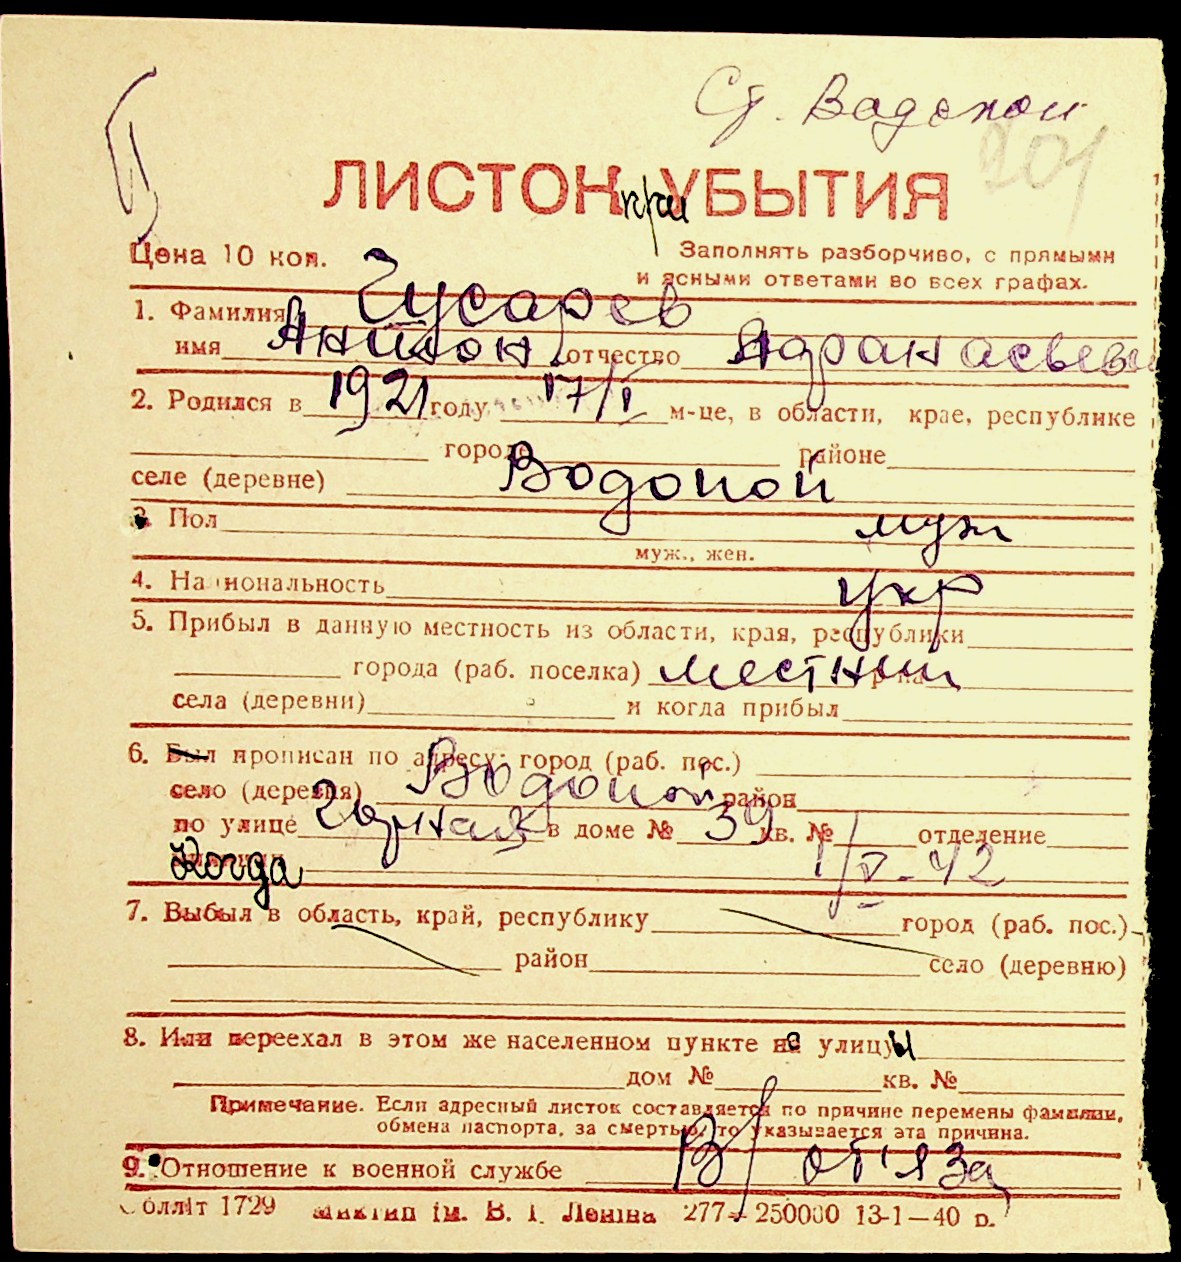 Ст. Водопой
201
ЛИСТОК при УБЫТИЯ
Цена 10 коп.
Заполнять разборчиво, с прямыми
и ясными ответами во всех графах.
1. Фамилия Гусарев
имя Антон отчество
2. Родился в 1921 году 17/I м-це, в области, крае, республике
городе районе
селе (деревне) Водопой
3. Пол муж
муж., жен.
4. Национальность укр
5. Прибыл в данную местность из области, края, республики
города (раб. поселка) местный
села (деревни) и когда прибыл
6. Был прописан по адресу: город (раб. пос.)
село (деревня) Водопой район
по улице в доме № 39 кв. № отделение
Когда 1/V-42
7. Выбыл в область, край, республику город (раб. пос.)
район село (деревню)
8. Или переехал в этом же населенном пункте не улицы
дом № кв. №
Примечание. Если адресный листок составляется по причине перемены фамилии,
обмена паспорта, за смертью, то указывается эта причина.
9. Отношение к военной службе В/обяза
блліт 1729 ім. В. І. Леніна 277—250000 13-1—40 р.